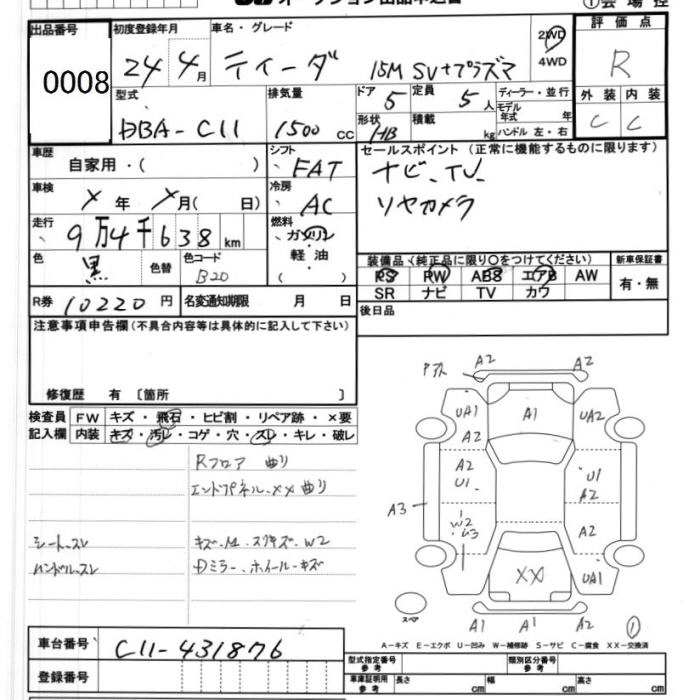 オークション出品申込書
①会場控
出品番号 0008
初度登録年月 24年 4月
車名・グレード ティーダ 15M SV+プラズマ
2WD
4WD
評価点 R
型式 DBA-C11
排気量 1500 cc
ドア 5
定員 5人
形状 HB
積載 kg
ディーラー・並行
モデル年式 年
ハンドル 左・右
外装 内装
C C
車歴 自家用・( )
シフト FAT
セールスポイント (正常に機能するものに限ります)
ナビ、TV、
リヤカメラ
車検 × 年 × 月( 日)
冷房 AC
走行 9万4千638km
燃料 ガソリン
軽・油
( )
色 黒 色替
色コード B20
装備品 (純正品に限り〇をつけてください)
PS PW ABS エアB AW
SR ナビ TV カワ
新車保証書
有・無
R券 10220円
名変通知期限 月 日
後日品
注意事項申告欄(不具合内容等は具体的に記入して下さい)
修復歴 有 〔箇所 〕
検査員 FW キズ・飛石・ヒビ割・リペア跡・×要
記入欄 内装 キズ・汚レ・コゲ・穴・スレ・キレ・破レ
Rフロア 曲り
エンドパネル-XX 曲り
シート-スレ
ハンドル-スレ
Dミラー、ホイール-キズ
A2 A2
UA1 A1 UA2
A2
A2 U1
U1 A2
A3
W2
A2
XX UA1
スペア
A1 A1 A2 ①
A-キズ E-エクボ U-凹み W-補修跡 S-サビ C-腐食 XX-交換済
車台番号 C11-431876
登録番号
型式指定番号 参考
類別区分番号 参考
車庫証明用 参考
長さ cm 幅 cm 高さ cm